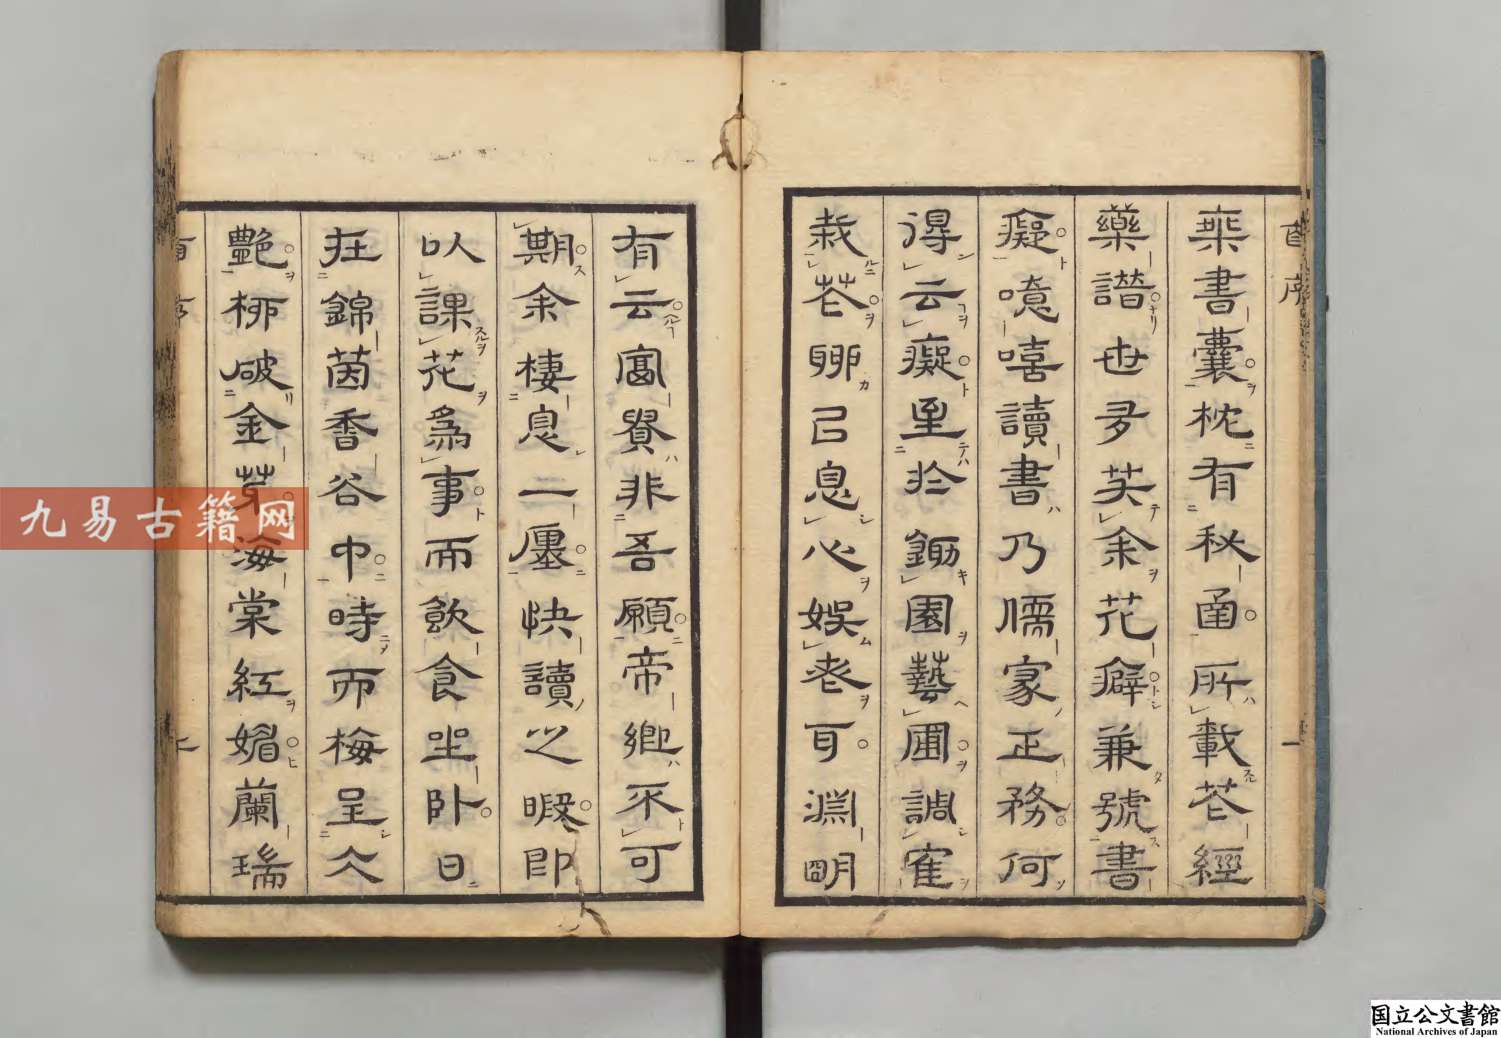 自序 一
乘書囊枕有秘函所載花經
藥譜世多笑余花癖兼號書
癡噫嘻讀書乃儒家正務何
得云癡至於鋤園藝圃調寉
栽花聊㠯息心娛老耳淵明
有云富貴非吾願帝鄉不可
期余棲息一廛快讀之暇即
以課花為事而飲食坐臥日
在錦茵香谷中時而梅呈人
艷柳破金芽海棠紅媚蘭瑞
九易古籍网
国立公文書館
National Archives of Japan